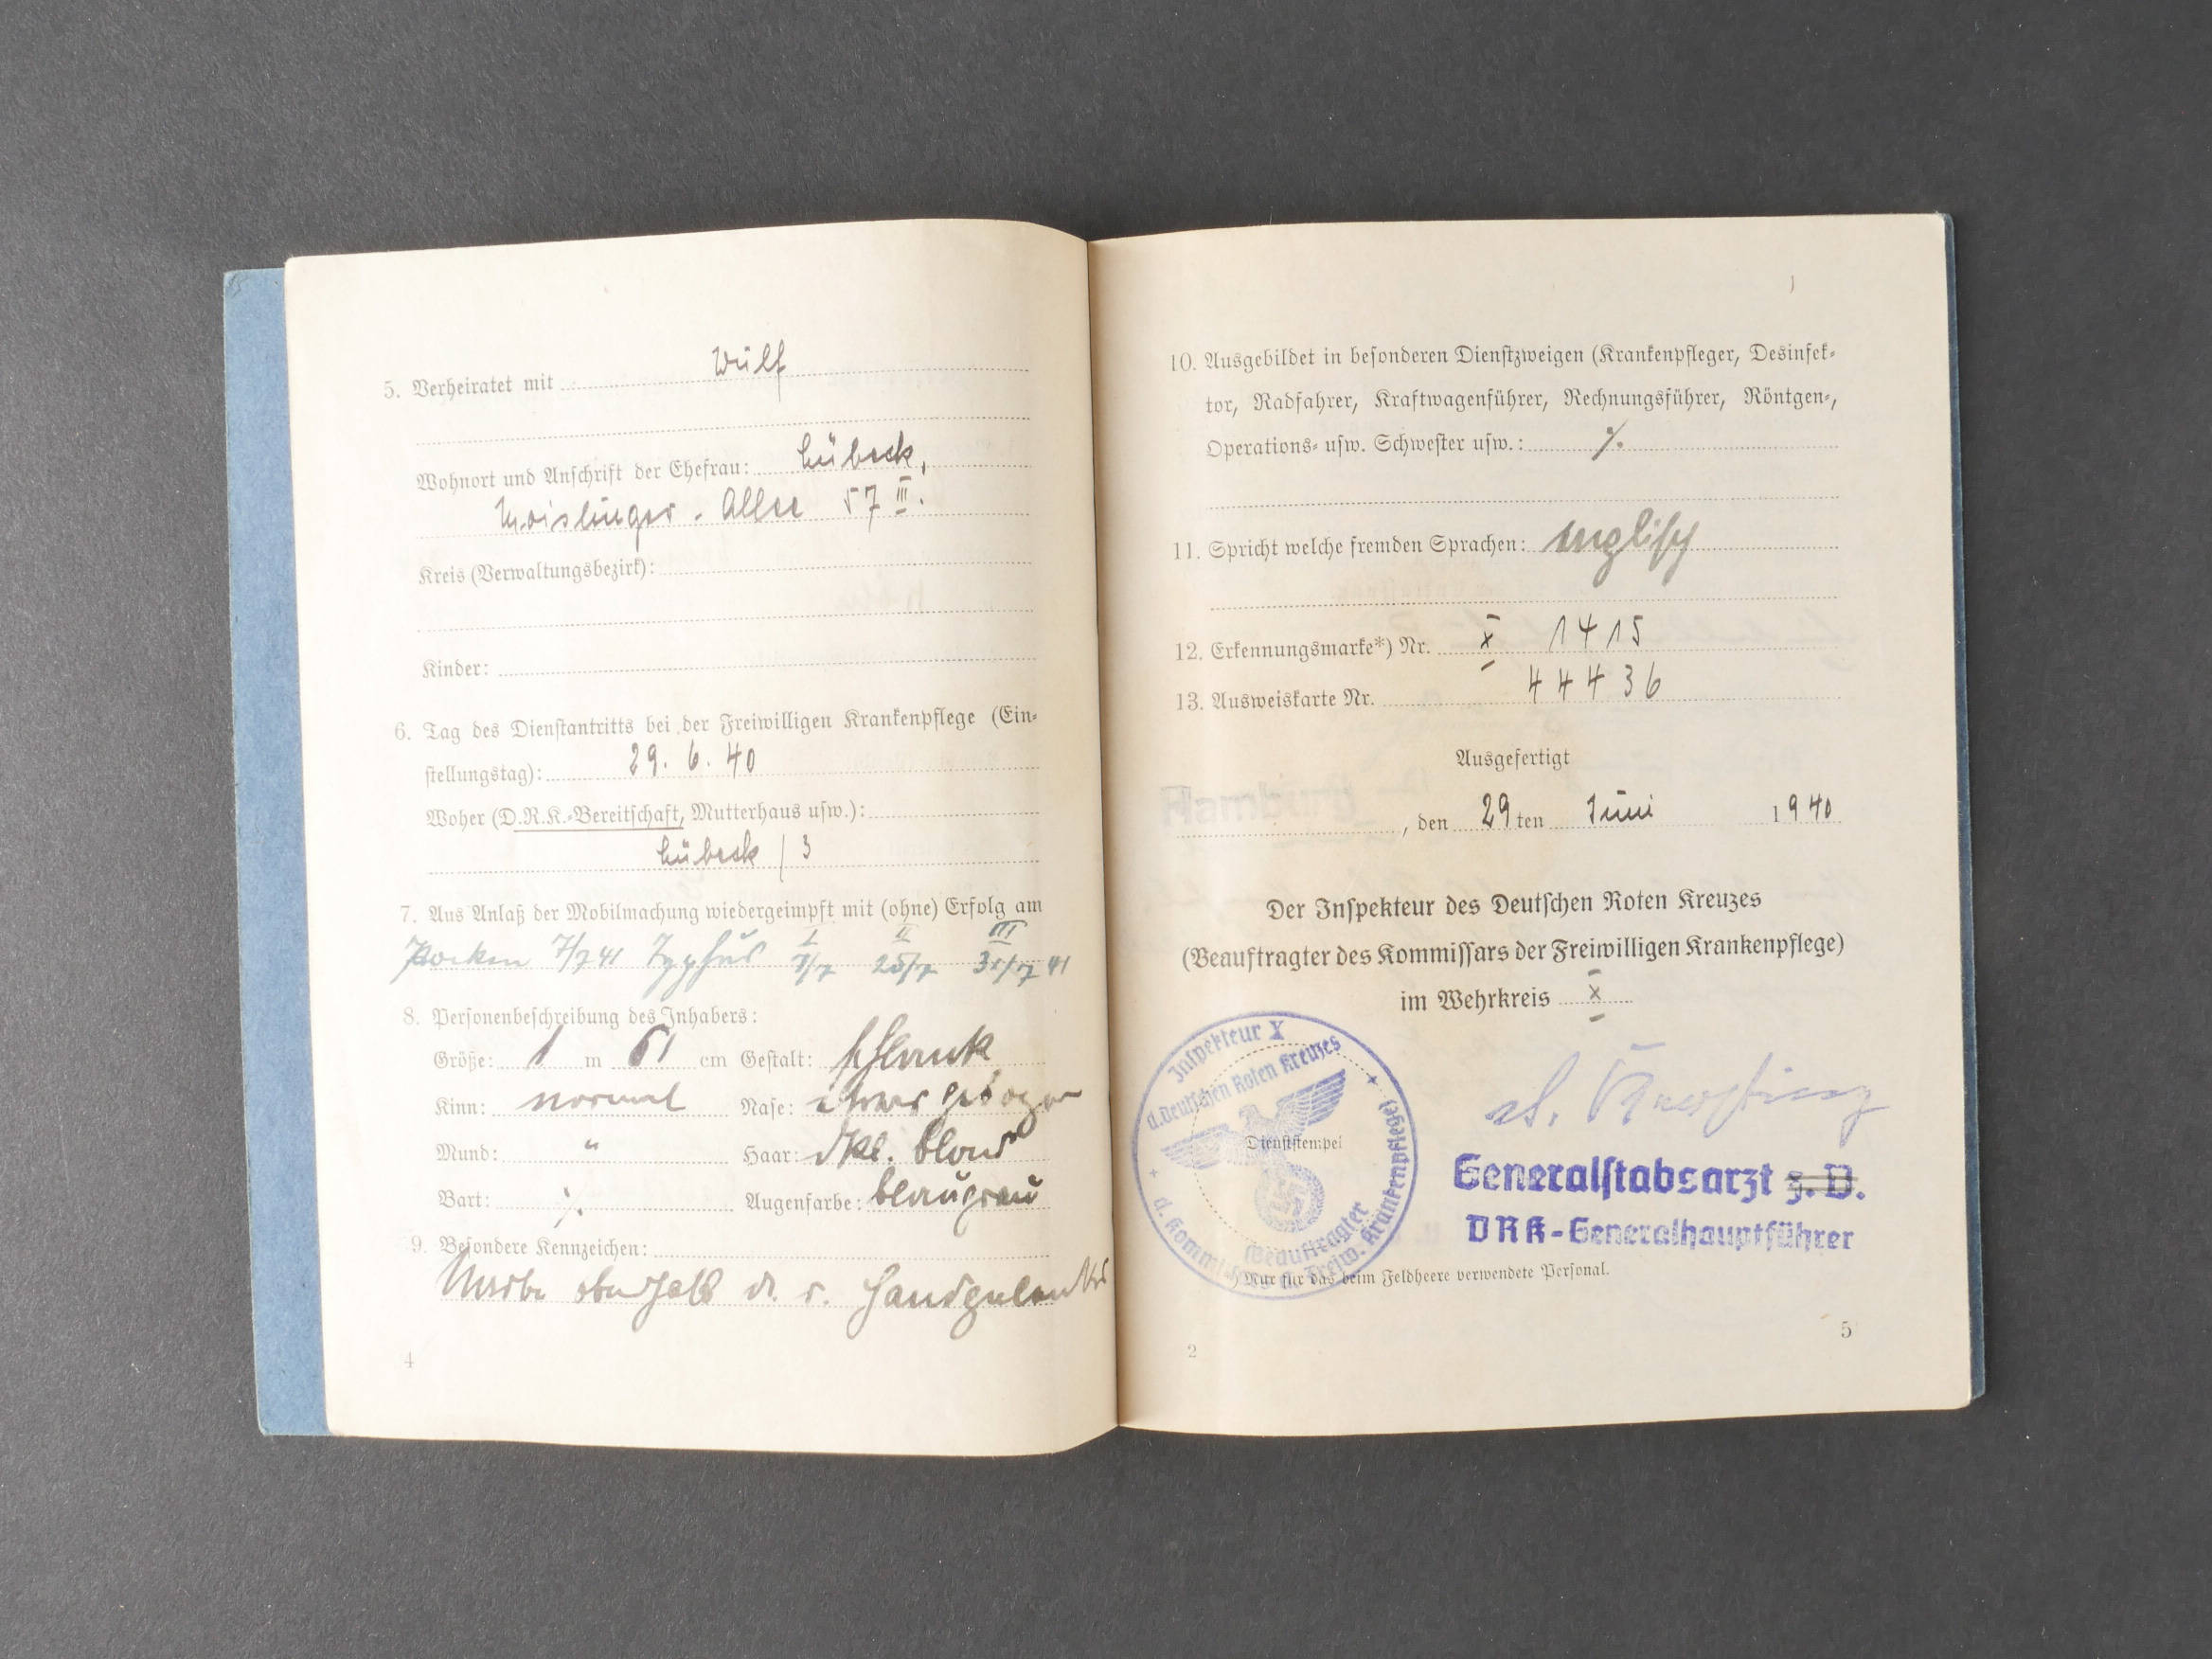 5. Verheiratet mit Wulf
Wohnort und Anschrift der Ehefrau: Lübeck,
Moislinger-Allee 57 III.
Kreis (Verwaltungsbezirk):
Kinder:
6. Tag des Dienstantritts bei der Freiwilligen Krankenpflege (Ein-
stellungstag): 29. 6. 40
Woher (D.R.K.-Bereitschaft, Mutterhaus usw.):
Lübeck / 3
7. Aus Anlaß der Mobilmachung wiedergeimpft mit (ohne) Erfolg am
I II III
Pocken 7/7 41 Typhus 25/7 41
8. Personenbeschreibung des Inhabers:
Größe: 1 m 61 cm Gestalt: schlank
Kinn: normal Nase: etwas gebogen
Mund: " Haar: dkl. blond
Bart: ./. Augenfarbe: blaugrau
9. Besondere Kennzeichen:
Narbe oberhalb d. r. Handgelenkes
4
10. Ausgebildet in besonderen Dienstzweigen (Krankenpfleger, Desinfek-
tor, Radfahrer, Kraftwagenführer, Rechnungsführer, Röntgen-,
Operations- usw. Schwester usw.: ./.
11. Spricht welche fremden Sprachen: englisch
12. Erkennungsmarke*) Nr. X 1415
13. Ausweiskarte Nr. 44436
Ausgefertigt
Hamburg, den 29ten Juni 1940
Der Inspekteur des Deutschen Roten Kreuzes
(Beauftragter des Kommissars der Freiwilligen Krankenpflege)
im Wehrkreis X
Inspekteur X
d. Deutschen Roten Kreuzes
Dienststempel
(Beauftragter
d. Kommissars d. Freiw. Krankenpflege)
Generalstabsarzt z. D.
DRK-Generalhauptführer
*) Nur für das beim Feldheere verwendete Personal.
2
5